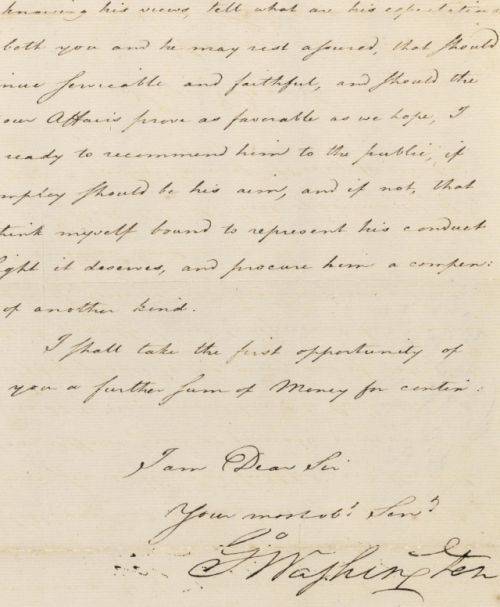 knowing his views, tell what are his expectations
both you and he may rest assured, that should
nue serviceable and faithful, and should the
our Affairs prove as favorable as we hope, I
ready to recommend him to the public, if
mploy should be his aim, and if not, that
think myself bound to represent his conduct
light it deserves, and procure him a compen:
of another kind.
I shall take the first opportunity of
you a further sum of Money for contin:
I am Dear Sir
Your most obt Servt
Go Washington